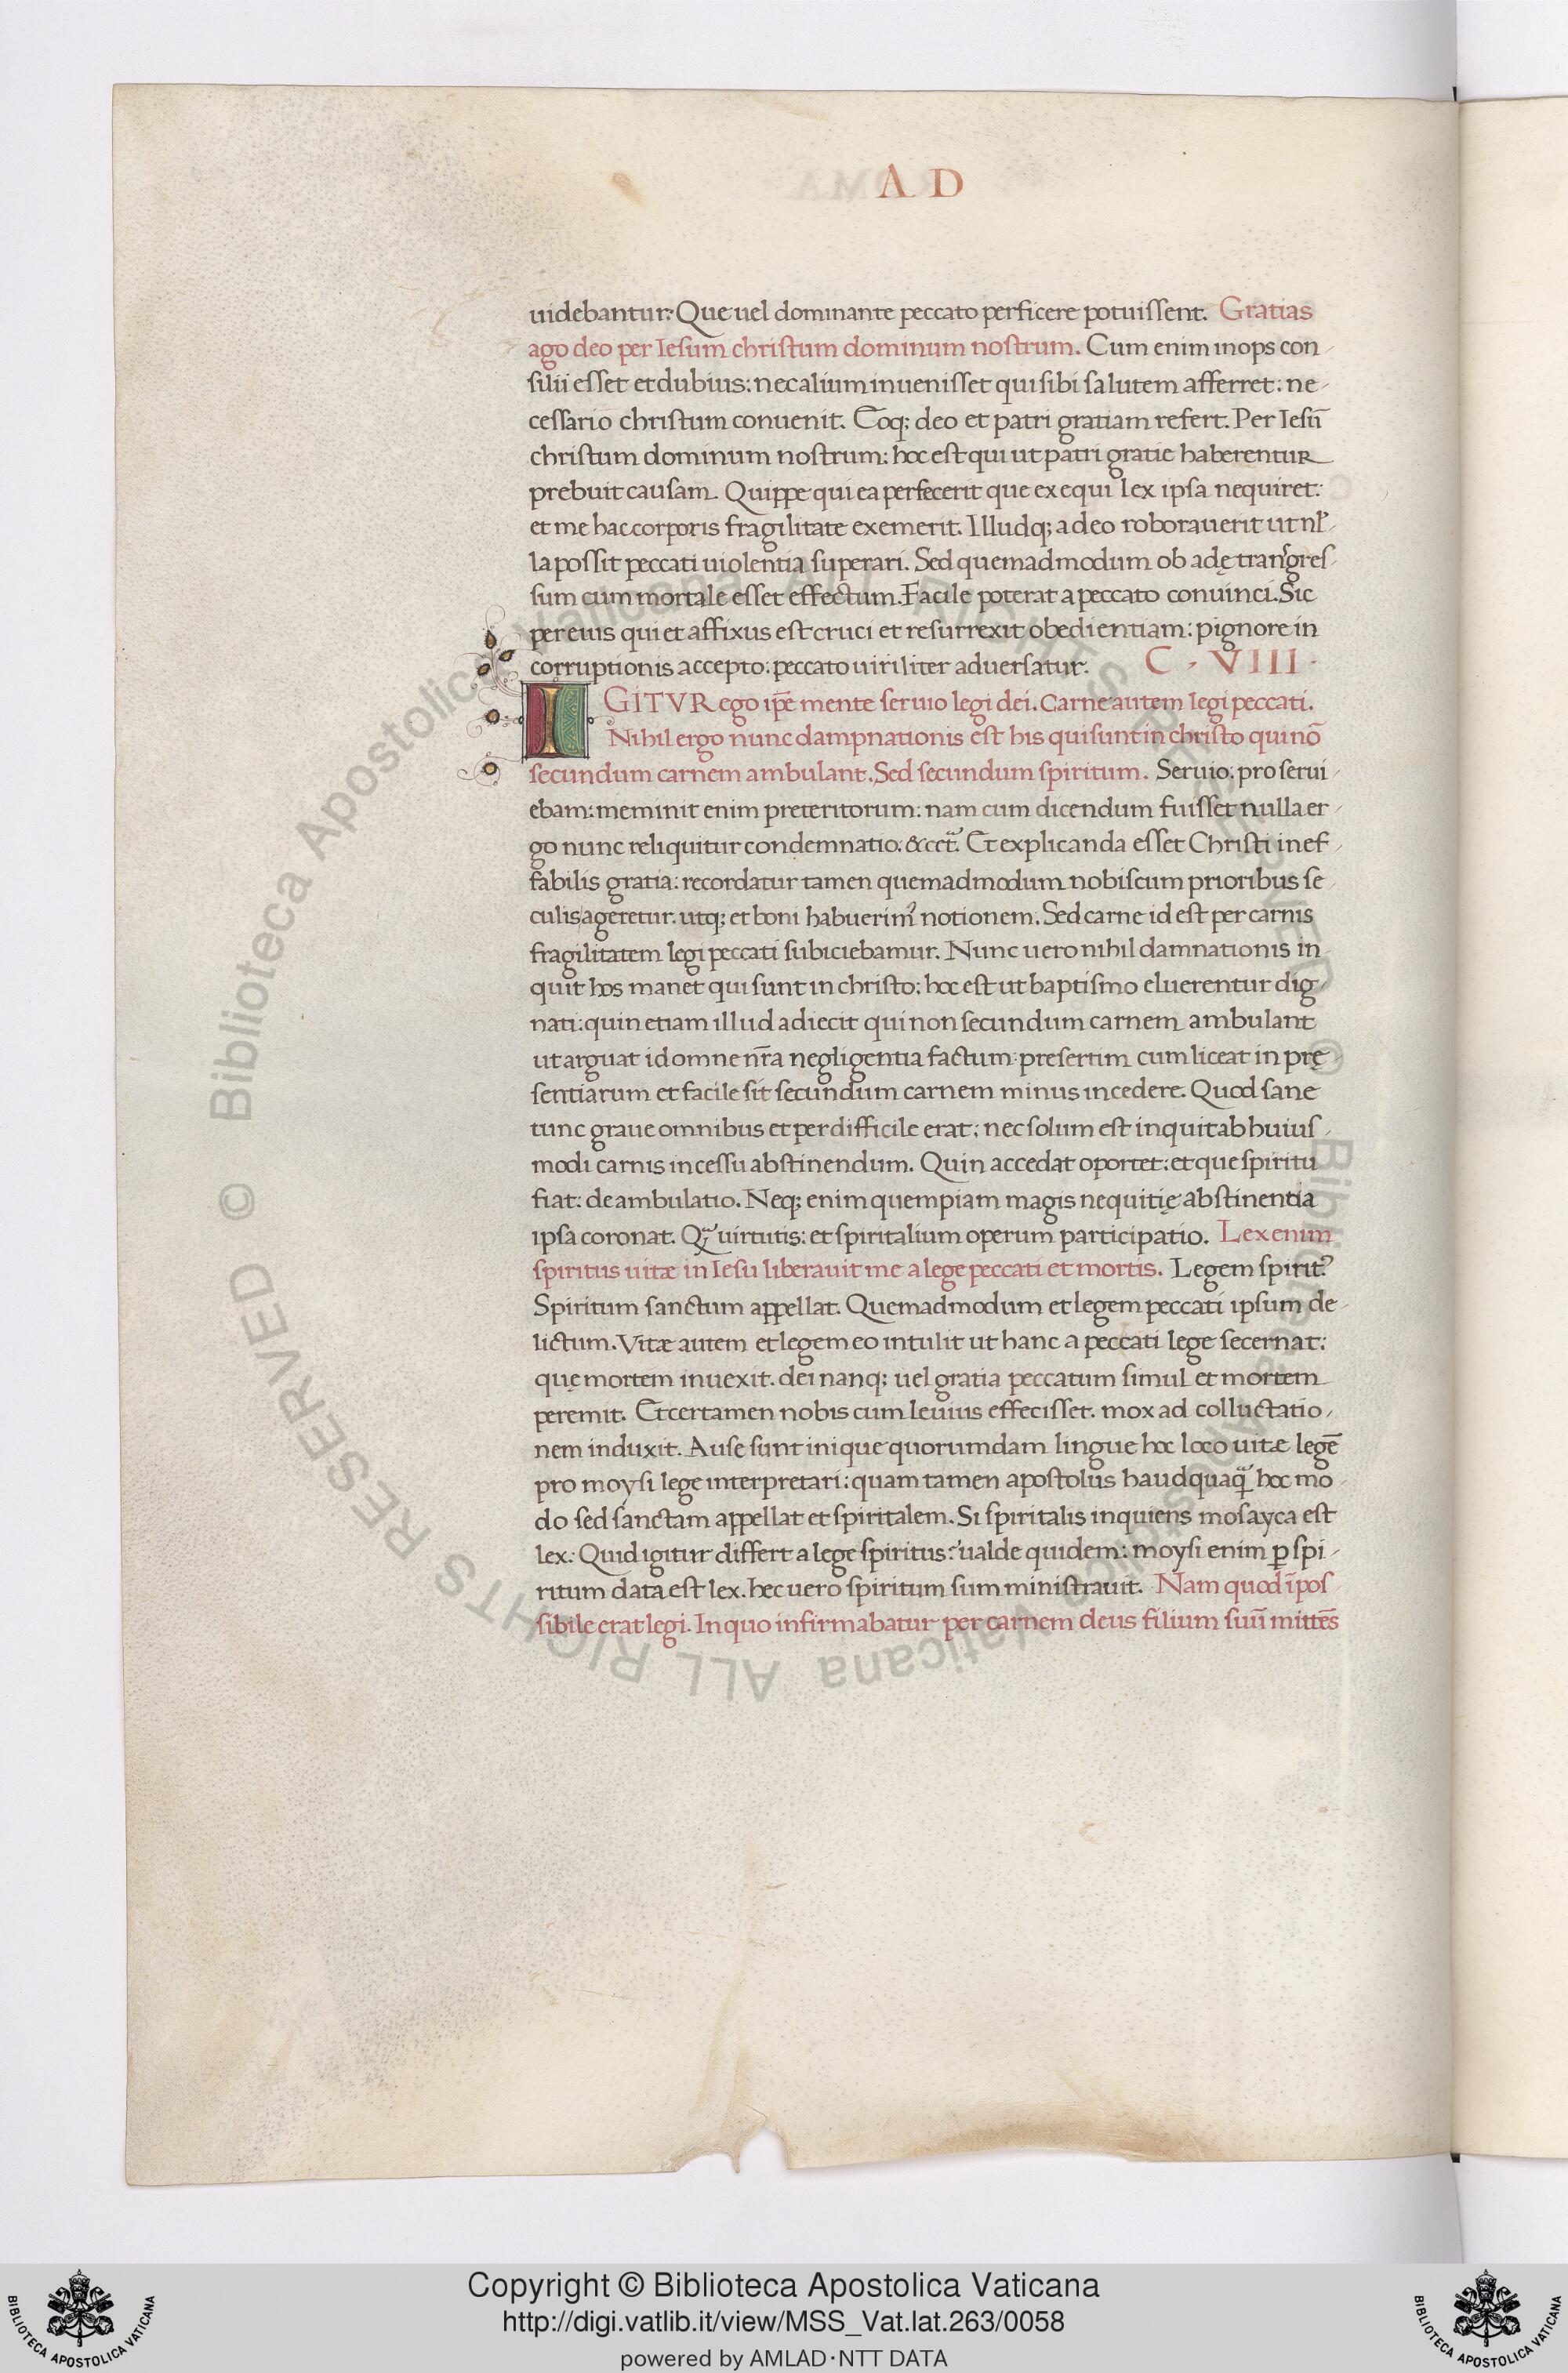 A D
uidebantur: Que uel dominante peccato perficere potuissent. Gratias
ago deo per Iesum christum dominum nostrum. Cum enim inops con-
silii esset et dubius: nec alium inuenisset qui sibi salutem afferret: ne-
cessario christum conuenit. Eoq; deo et patri gratiam refert. Per Iesū
christum dominum nostrum: hoc est qui ut patri gratie haberentur
prebuit causam. Quippe qui ea perfecerit que exequi lex ipsa nequiret:
et me hac corporis fragilitate exemerit. Illudq; adeo roborauerit ut nl̛-
la possit peccati uiolentia superari. Sed quemadmodum ob adę transgres-
sum cum mortale esset effectum. Facile poterat a peccato conuinci. Sic
per eius qui et affixus est cruci et resurrexit obedientiam: pignore in
corruptionis accepto: peccato uiriliter aduersatur. C · VIII ·
IGITVR ego ip̄e mente seruio legi dei. Carne autem legi peccati.
Nihil ergo nunc dampnationis est his qui sunt in christo qui nō
secundum carnem ambulant. Sed secundum spiritum. Seruio: pro serui-
ebam: meminit enim preteritorum: nam cum dicendum fuisset nulla er-
go nunc reliquitur condemnatio: & cet̃. Et explicanda esset Christi inef-
fabilis gratia: recordatur tamen quemadmodum nobiscum prioribus se-
culis ageretur. utq; et boni habuerimꝰ notionem. Sed carne id est per carnis
fragilitatem legi peccati subiciebamur. Nunc uero nihil damnationis in-
quit hos manet qui sunt in christo: hoc est ut baptismo eluerentur dig-
nati: quin etiam illud adiecit qui non secundum carnem ambulant
ut arguat id omne nr̄a negligentia factum: presertim cum liceat in prę-
sentiarum et facile sit secundum carnem minus incedere. Quod sane
tunc graue omnibus et perdifficile erat: nec solum est inquit ab huius-
modi carnis incessu abstinendum. Quin accedat oportet: et que spiritu
fiat: deambulatio. Neq; enim quempiam magis nequitię abstinentia
ipsa coronat. Qͣ uirtutis: et spiritalium operum participatio. Lex enim
spiritus uitæ in Iesu liberauit me a lege peccati et mortis. Legem spiritꝰ
Spiritum sanctum appellat. Quemadmodum et legem peccati ipsum de-
lictum. Vitæ autem et legem eo intulit ut hanc a peccati lege secernat:
quę mortem inuexit. dei nanq; uel gratia peccatum simul et mortem
peremit. Et certamen nobis cum leuius effecisset. mox ad colluctatio-
nem induxit. Ause sunt inique quorumdam lingue hoc loco uitæ legē
pro moysi lege interpretari: quam tamen apostolus haudquaqͣ hoc mo-
do sed sanctam appellat et spiritalem. Si spiritalis inquiens mosayca est
lex: Quid igitur differt a lege spiritus? ualde quidem: moysi enim ꝑ spi-
ritum data est lex. hec uero spiritum sum ministrauit. Nam quod īpos-
sibile erat legi. In quo infirmabatur per carnem deus filium suū mittēs
© Biblioteca Apostolica Vaticana ALL RIGHTS RESERVED © Biblioteca Apostolica Vaticana ALL RIGHTS RESERVED
BIBLIOTECA APOSTOLICA VATICANA
Copyright © Biblioteca Apostolica Vaticana
http://digi.vatlib.it/view/MSS_Vat.lat.263/0058
powered by AMLAD·NTT DATA
BIBLIOTECA APOSTOLICA VATICANA